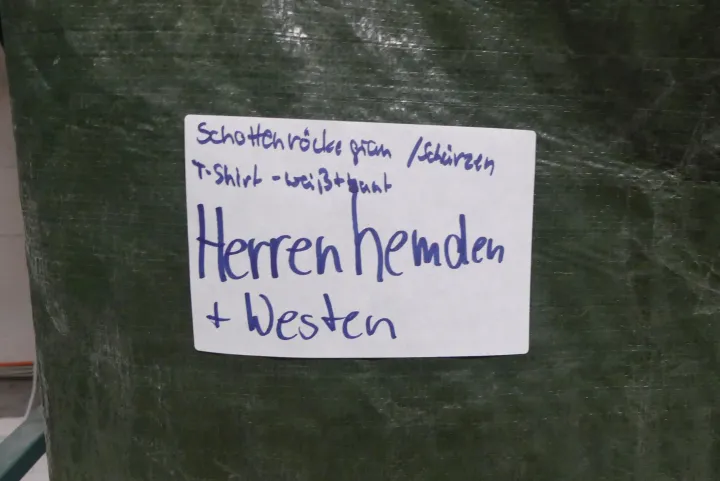 Schottenröcke grün /Schürzen
T-Shirt - weiß + bunt
Herrenhemden
+ Westen